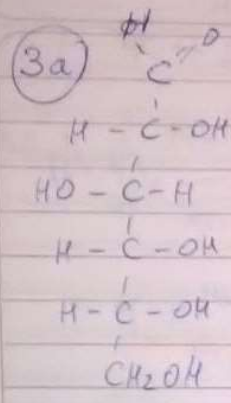 3a
H O
C
H - C - OH
HO - C - H
H - C - OH
H - C - OH
CH2OH